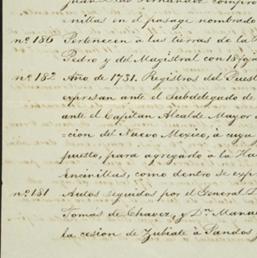 Juan ... Fernandez compro
cinillas en el pasage nombrado
nº 186 Pertenecen a las tierras de la
Pedro y del Magistral con 18 foja
nº 182 Año de 1731. Registros del Puest
expresan ante el Subdelegado de
ante el Capitan Alcalde Mayor
cion del Nuevo Mexico, a cuya
puesto, para agregarlo a la Ha
Encinillas, como dentro se exp
nº 181 Autos seguidos por el General D.
Tomas de Chavez, y Dn. Manue
la cesion de Zubiate á Pandos